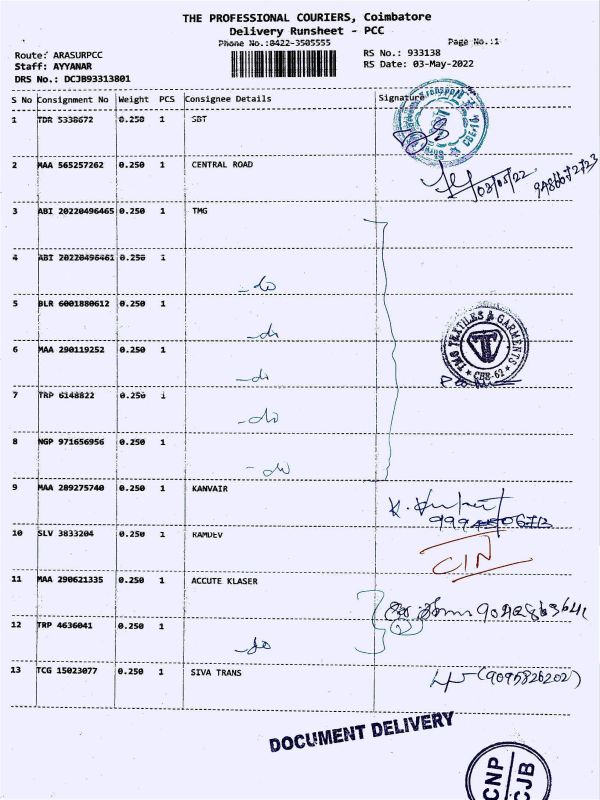 THE PROFESSIONAL COURIERS, Coimbatore
Delivery Runsheet - PCC
Phone No.:0422-3505555
Page No.:1
Route: ARASURPCC
RS No.: 933138
Staff: AYYANAR
RS Date: 03-May-2022
DRS No.: DCJB93313801
S No Consignment No Weight PCS Consignee Details Signature
1 TDR 5338672 0.250 1 SBT
2 MAA 565257262 0.250 1 CENTRAL ROAD
03/05/22
3 ABI 20220496465 0.250 1 TMG
4 ABI 20220496461 0.250 1 -do
5 BLR 6001880612 0.250 1 -do
TMG TEXTILES & GARMENTS
CBE-62
6 MAA 290119252 0.250 1 -do
7 TRP 6148822 0.250 1 -do
8 NGP 971656956 0.250 1 -do
9 MAA 289275740 0.250 1 KANVAIR
10 SLV 3833204 0.250 1 RAMDEV
11 MAA 290621335 0.250 1 ACCUTE KLASER
12 TRP 4636041 0.250 1 -do
13 TCG 15023077 0.250 1 SIVA TRANS
(9095826202)
DOCUMENT DELIVERY
CNP
CJB